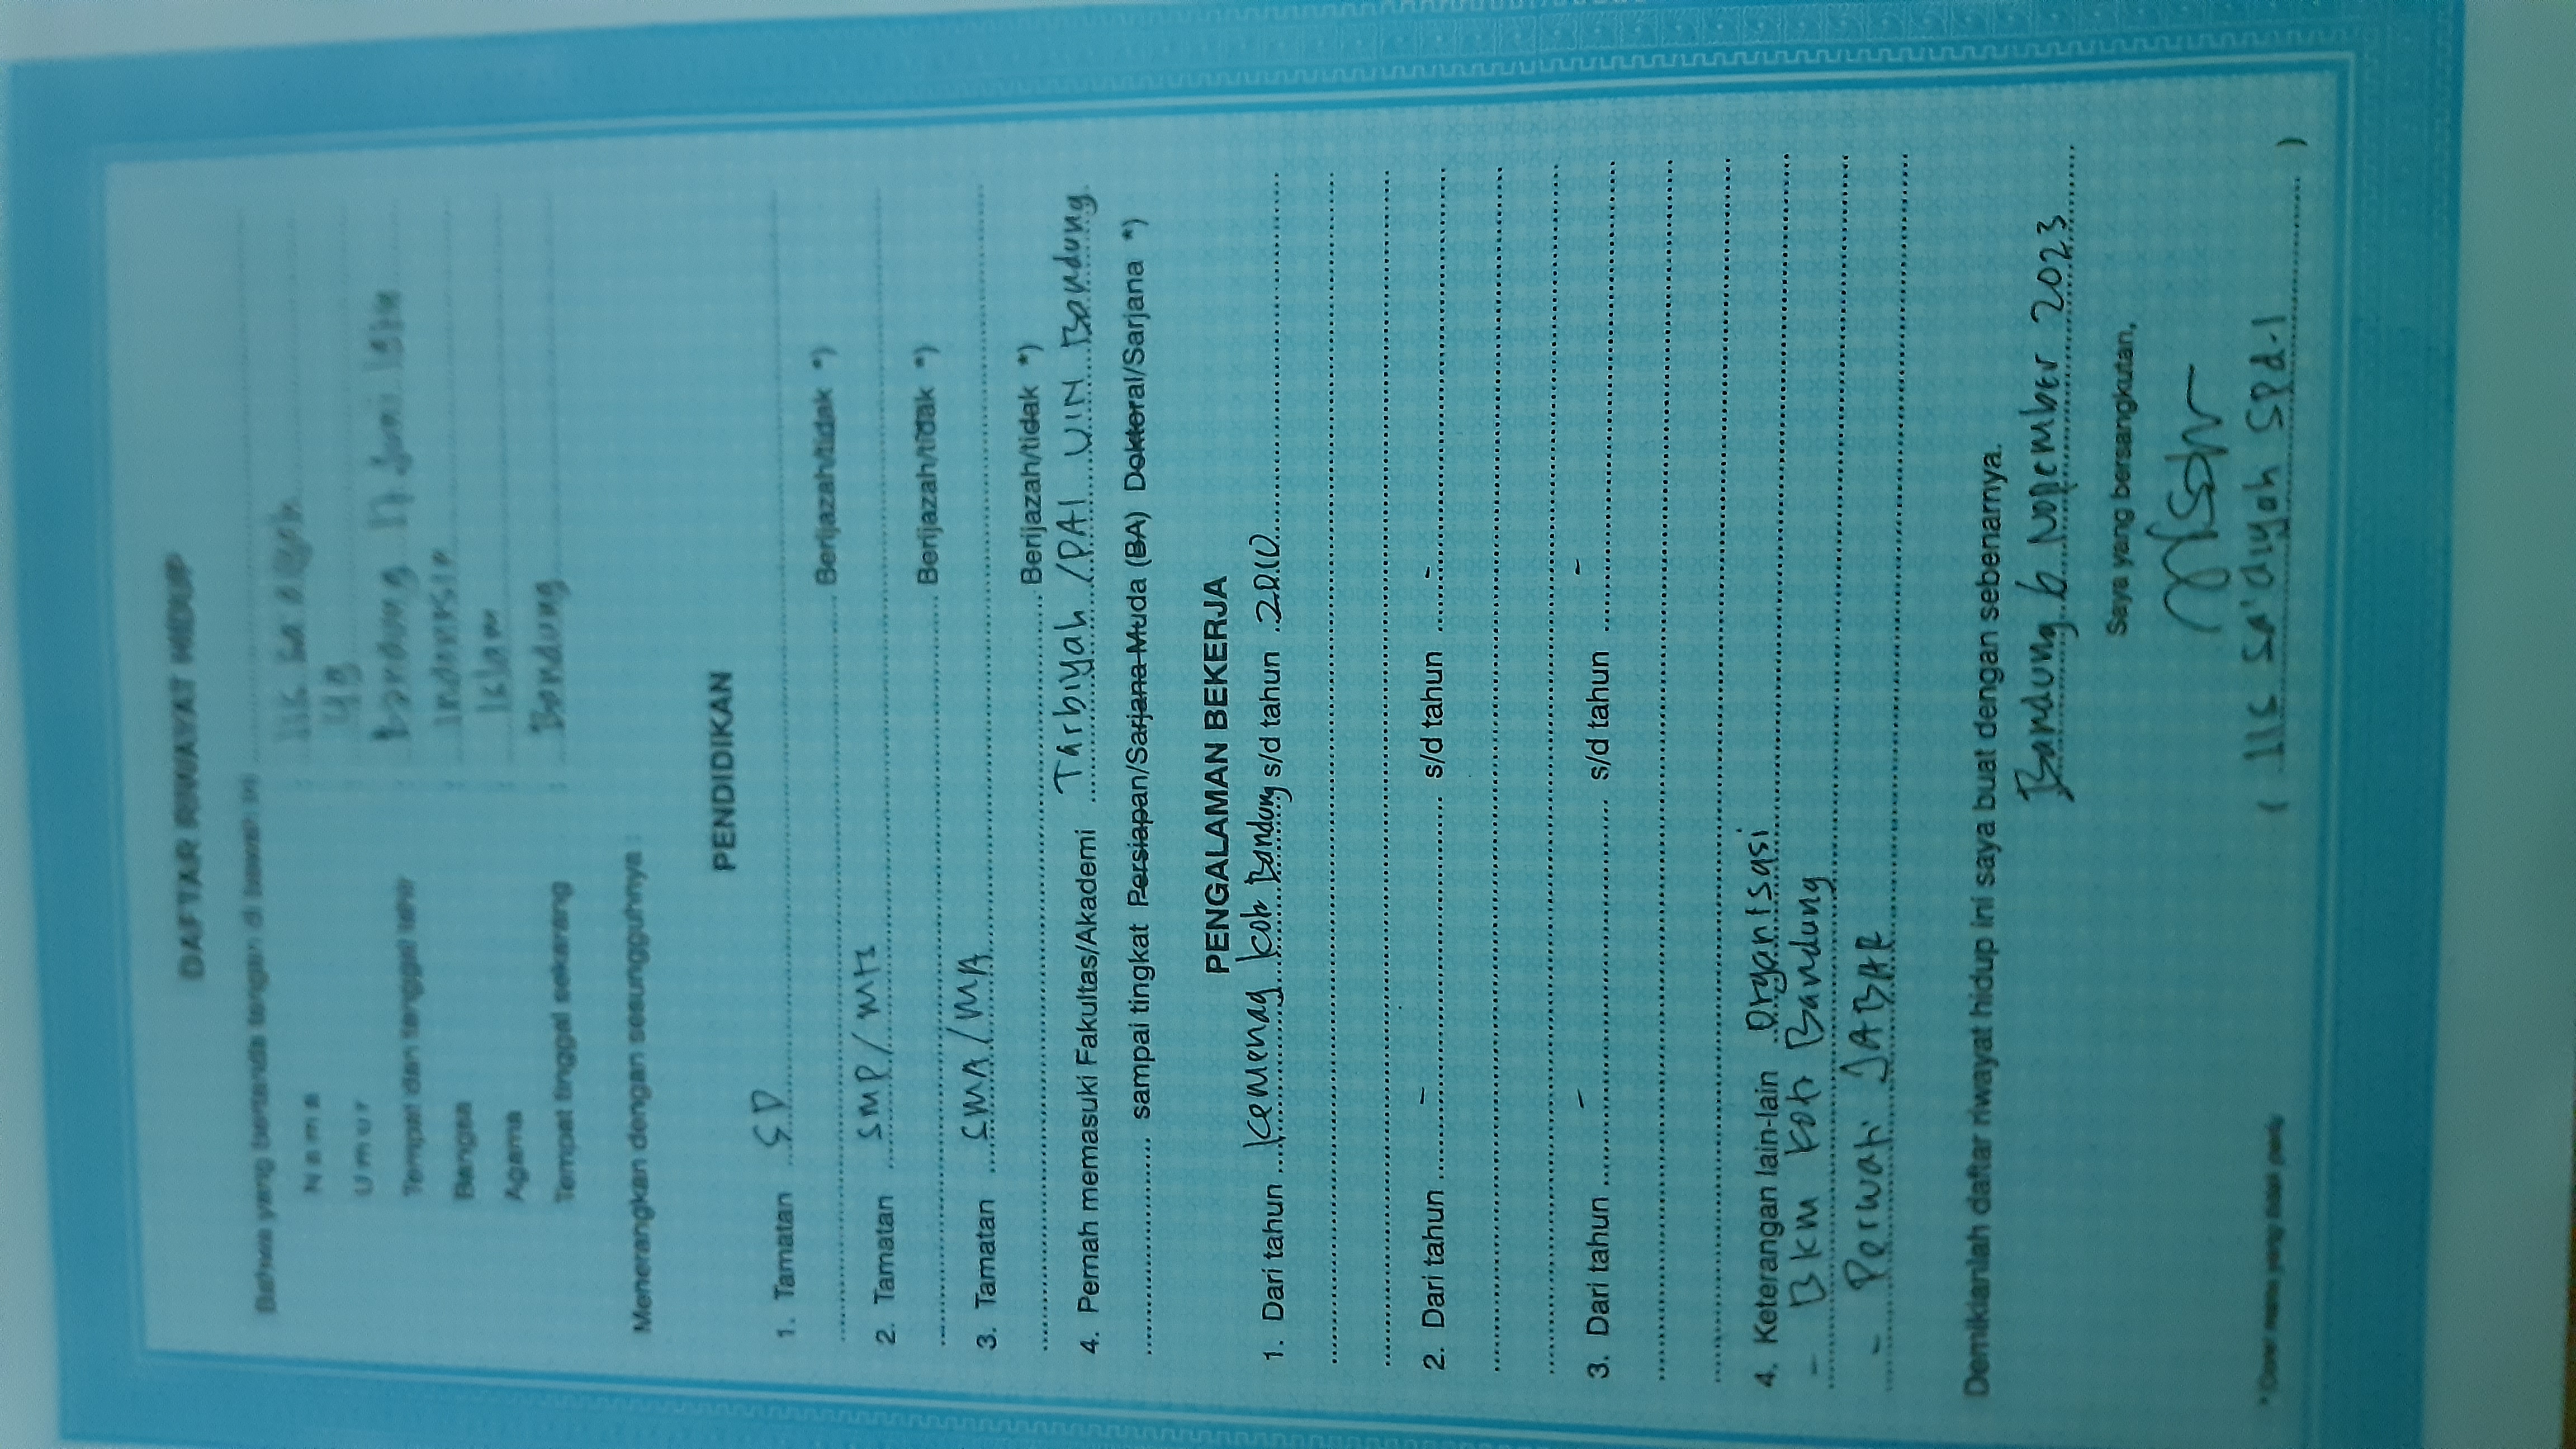 DAFTAR RIWAYAT HIDUP
Bahwa yang bertanda tangan di bawah ini
Nama : Iis
Umur :
Tempat dan tanggal lahir : Bandung 17 Juni
Bangsa : Indonesia
Agama : Islam
Tempat tinggal sekarang : Bandung
Menerangkan dengan sesungguhnya :
PENDIDIKAN
1. Tamatan SD
Berijazah/tidak *)
2. Tamatan SMP/MTs
Berijazah/tidak *)
3. Tamatan SMA/MA
Berijazah/tidak *)
4. Pernah memasuki Fakultas/Akademi Tarbiyah /PAI UIN Bandung
sampai tingkat Persiapan/Sarjana Muda (BA) Dokteral/Sarjana *)
PENGALAMAN BEKERJA
1. Dari tahun Kemenag Kota Bandung s/d tahun 2010
2. Dari tahun - s/d tahun -
3. Dari tahun - s/d tahun -
4. Keterangan lain-lain Organisasi
- BKM Kota Bandung
- Perwati JABAR
Demikianlah daftar riwayat hidup ini saya buat dengan sebenarnya.
Bandung 6 Nopember 2023
Saya yang bersangkutan,
( Iis Sa'diyah SPd-I )
*) Coret mana yang tidak perlu